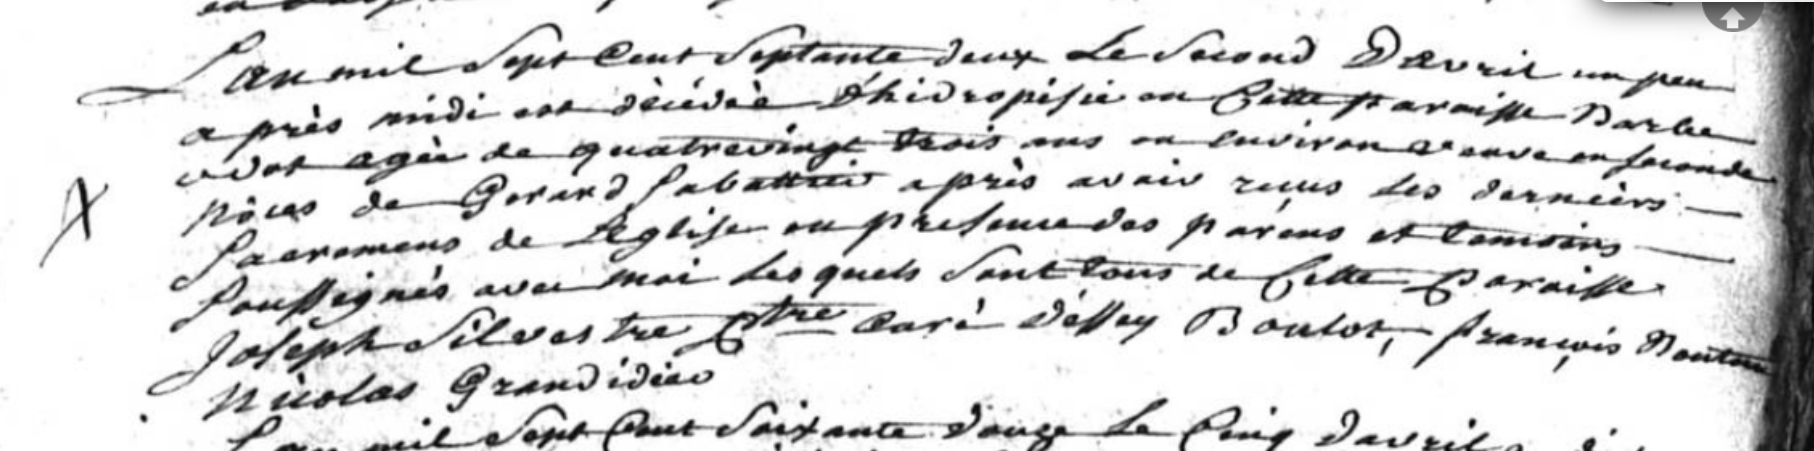 L'an mil Sept Cent Septante deux Le Second D'avril un peu
après midi est décédée d'hidropisie en Cette paroisse Barbe
odot agée de quatrevingt trois ans ou environ veuve en seconde
nôces de Gerard après avoir reçus les derniers
Sacremens de L'église en presence des parens et temoins
Soussignés avec moi Lesquels Sont tous de Cette Paroisse
Joseph Silvestre Ptre Curé d'essey Boulot, françois
Nicolas Grandidier
L'an mil Sept Cent Soixante douze Le Cinq d'avril